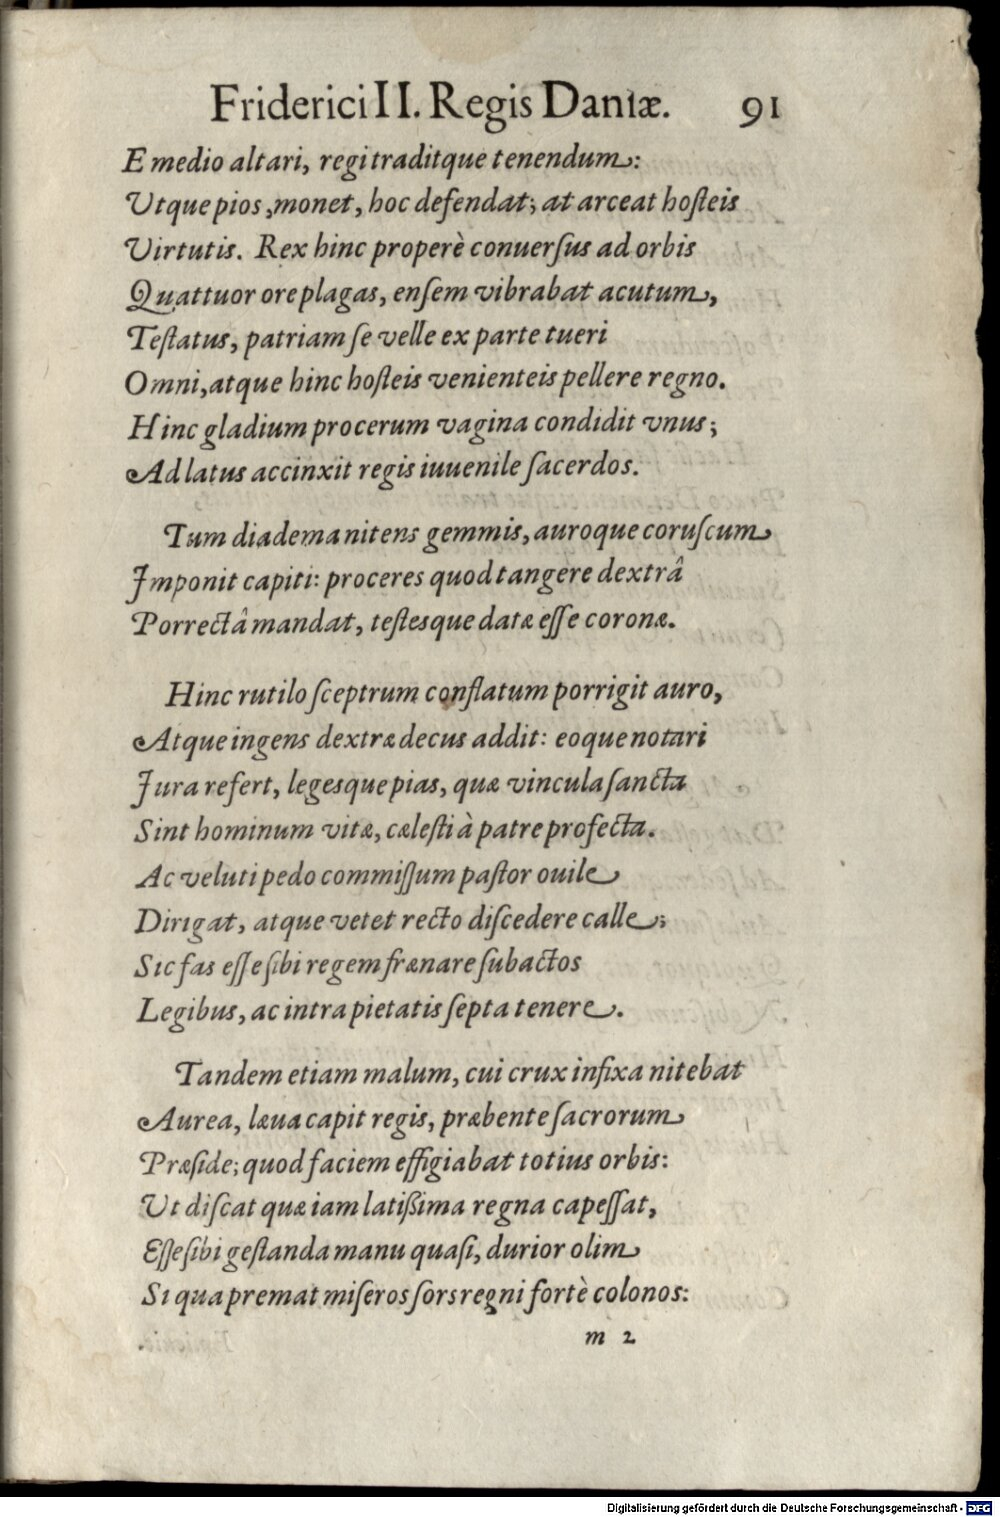 Friderici II. Regis Daniæ. 91
E medio altari, regi traditque tenendum:
Utque pios, monet, hoc defendat; at arceat hoſteis
Virtutis. Rex hinc properè conuerſus ad orbis
Quattuor ore plagas, enſem vibrabat acutum,
Teſtatus, patriam ſe velle ex parte tueri
Omni, atque hinc hoſteis venienteis pellere regno.
Hinc gladium procerum vagina condidit vnus;
Ad latus accinxit regis iuuenile ſacerdos.
Tum diadema nitens gemmis, auroque coruſcum
Imponit capiti: proceres quod tangere dextrâ
Porrectâ mandat, teſtesque datæ eſſe coronæ.
Hinc rutilo ſceptrum conflatum porrigit auro,
Atque ingens dextræ decus addit: eoque notari
Jura refert, legesque pias, quæ vincula ſancta
Sint hominum vitæ, cæleſti à patre profecta.
Ac veluti pedo commiſſum paſtor ouile
Dirigat, atque vetet recto diſcedere calle;
Sic fas eſſe ſibi regem frænare ſubactos
Legibus, ac intra pietatis ſepta tenere.
Tandem etiam malum, cui crux infixa nitebat
Aurea, læua capit regis, præbente ſacrorum
Præſide; quod faciem effigiabat totius orbis:
Ut diſcat quæ iam latißima regna capeſſat,
Eſſe ſibi geſtanda manu quaſi, durior olim
Si qua premat miſeros ſors regni fortè colonos:
m 2
Digitalisierung gefördert durch die Deutsche Forschungsgemeinschaft - DFG